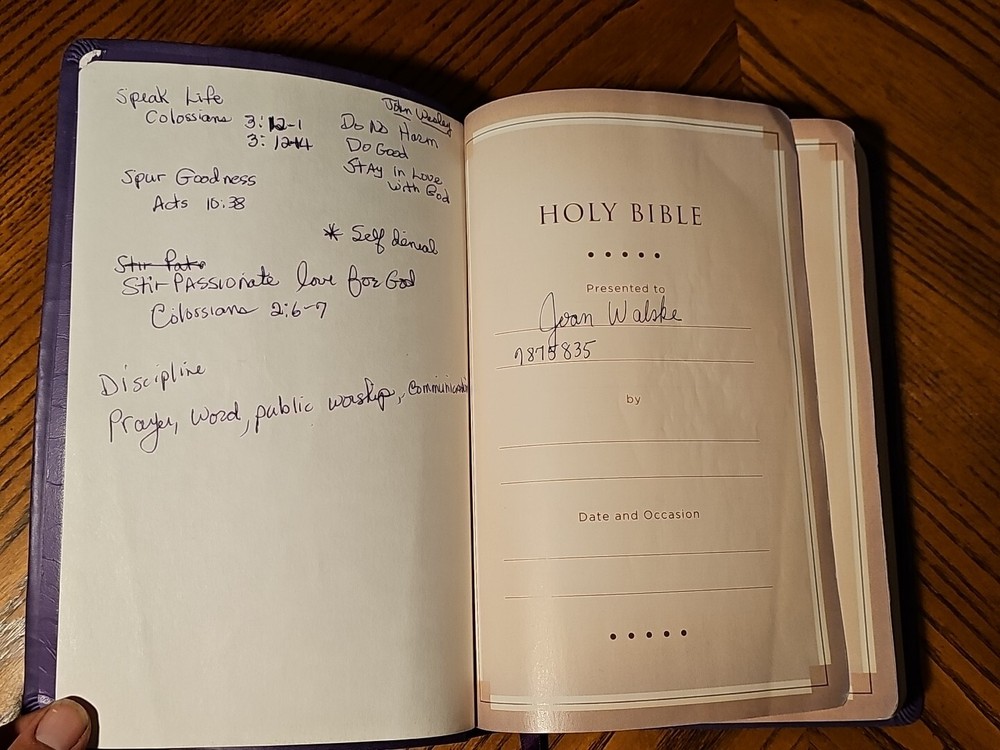 Speak Life
Colossians 3:12-1
3:12-14
Spur Goodness
Acts 10:38
Stir Pat
Stir PASSIONATE love for God
Colossians 2:6-7
Discipline
Prayer, Word, public worship, Communication
John Wesley
Do No Harm
Do Good
STAY in Love
with God
* Self denial
HOLY BIBLE
Presented to
Joan Walske
7875835
by
Date and Occasion